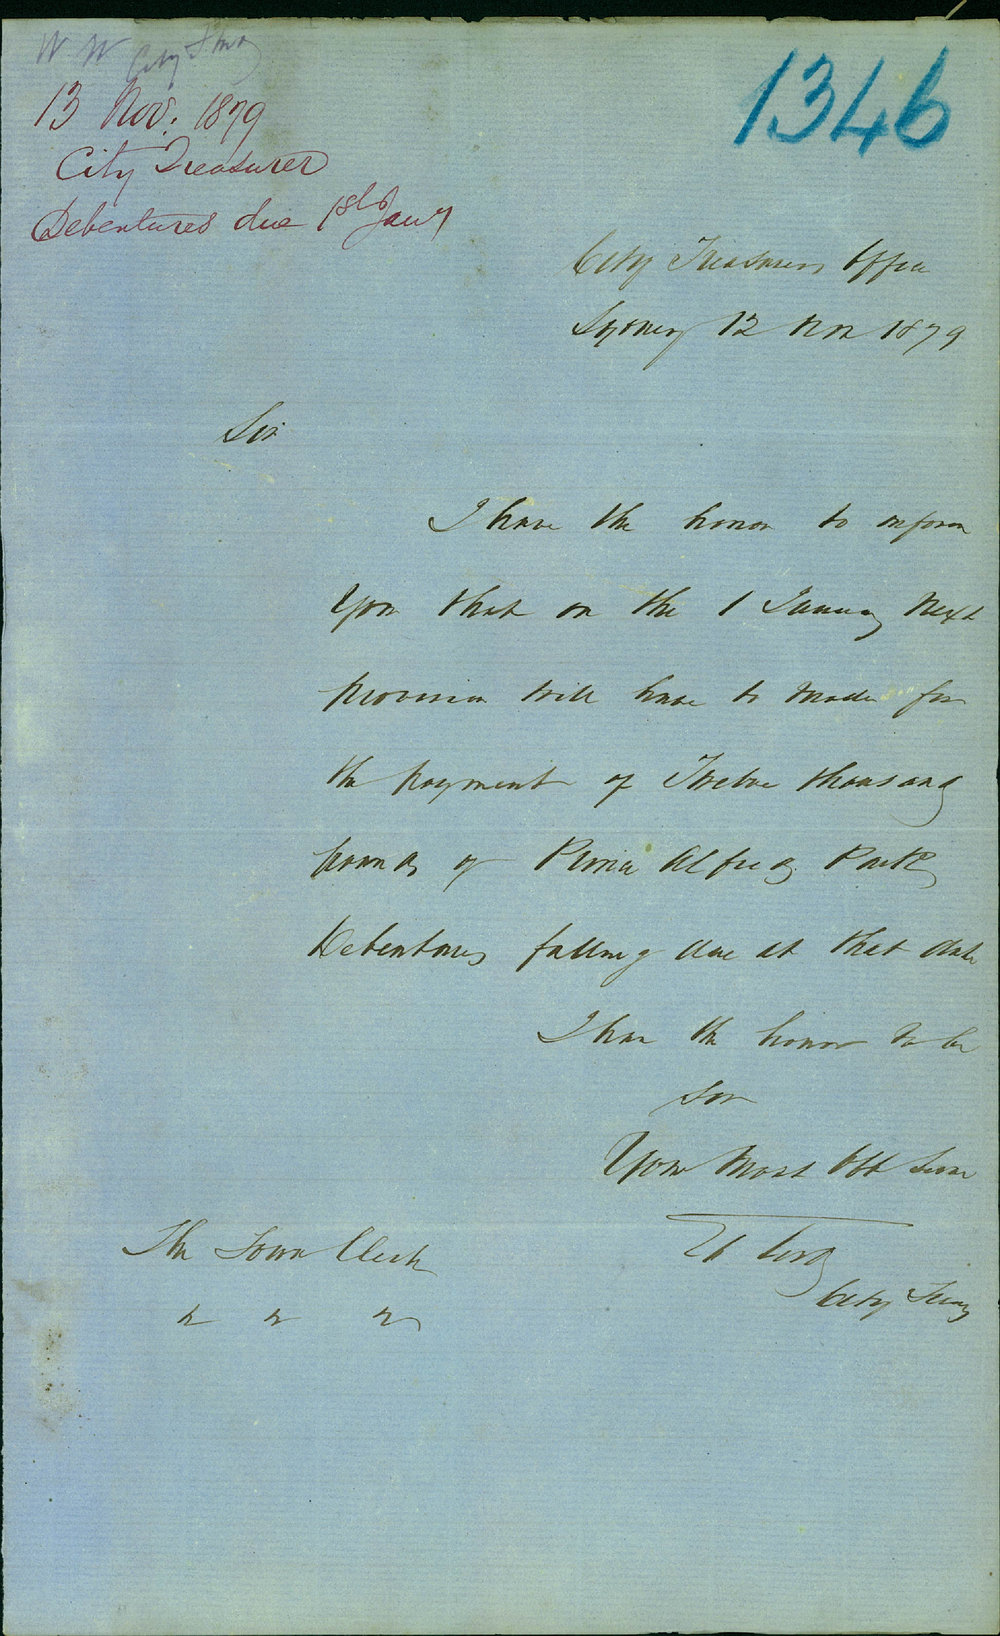 City
13 Nov. 1879
City Treasurer
Debentures due 1st Jany
1346
City Treasurers Office
Sydney 12 Nov 1879
Sir
I have the honor to inform
You that on the 1 January Next
provision will have to made for
the payment of Twelve thousand
pounds of Prince Alfred Park
Debentures falling due at that date
I have the honor to be
Sir
Your Most Obt Serv
City Treas
The Town Clerk